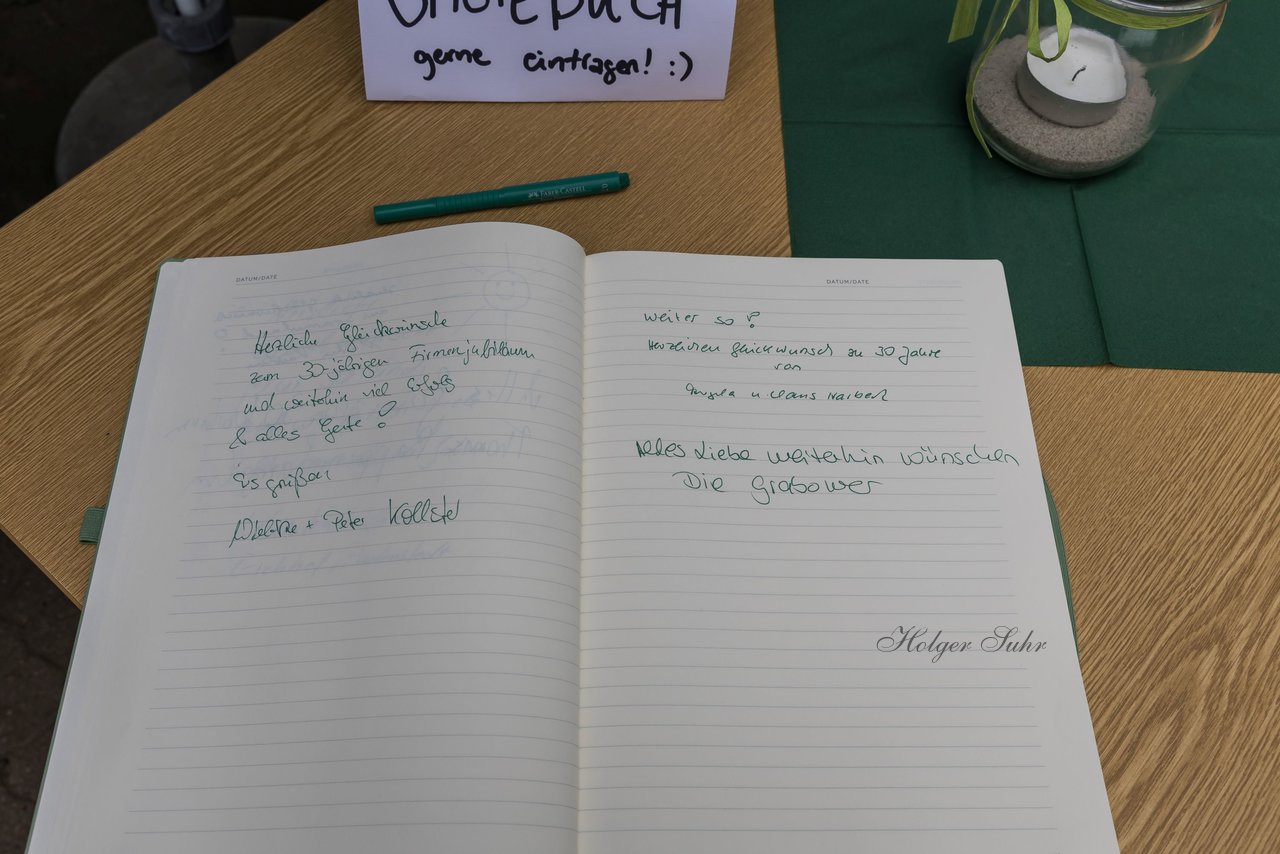 GÄSTEBUCH
gerne eintragen! :)
FABER-CASTELL
DATUM/DATE
Herzliche Glückwünsche
zum 30-jährigen Firmenjubiläum
und weiterhin viel Erfolg
& alles Gute!
Es grüßen
+ Peter Kollster
DATUM/DATE
weiter so!
Herzlichen Glückwunsch zu 30 Jahre
von
u. Claus Harbert
Alles Liebe weiterhin wünschen
Die Grabower
Holger Suhr